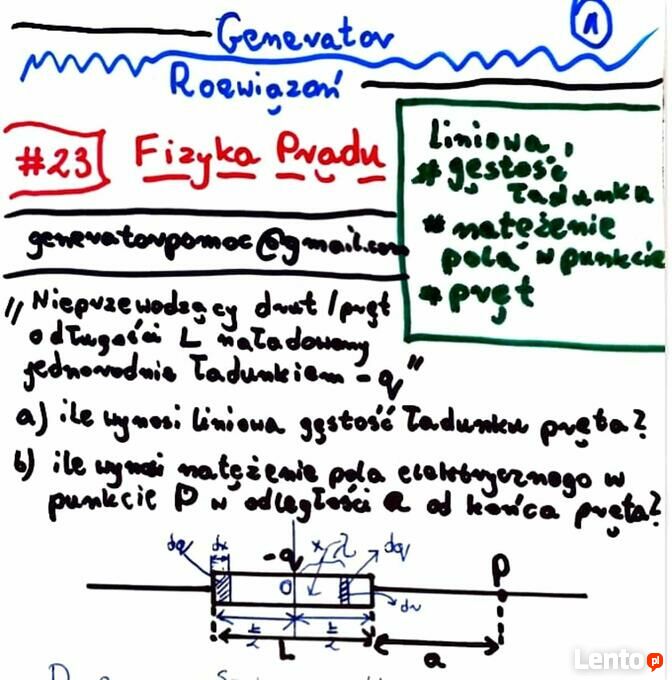 1
Generator
Rozwiązań
#23 Fizyka Prądu
Liniowa,
# gęstość
ładunku
* natężenie
pola w punkcie
* pręt
generatorpomoc@gmail.com
„Nieprzewodzący drut/pręt
o długości L naładowany
jednorodnie ładunkiem -q"
a) ile wynosi liniowa gęstość ładunku pręta?
b) ile wynosi natężenie pola elektrycznego w
punkcie P w odległości a od końca pręta?
dq dx -q x λ dq P
0
dx
L/2 L/2
L a
Lento.pl